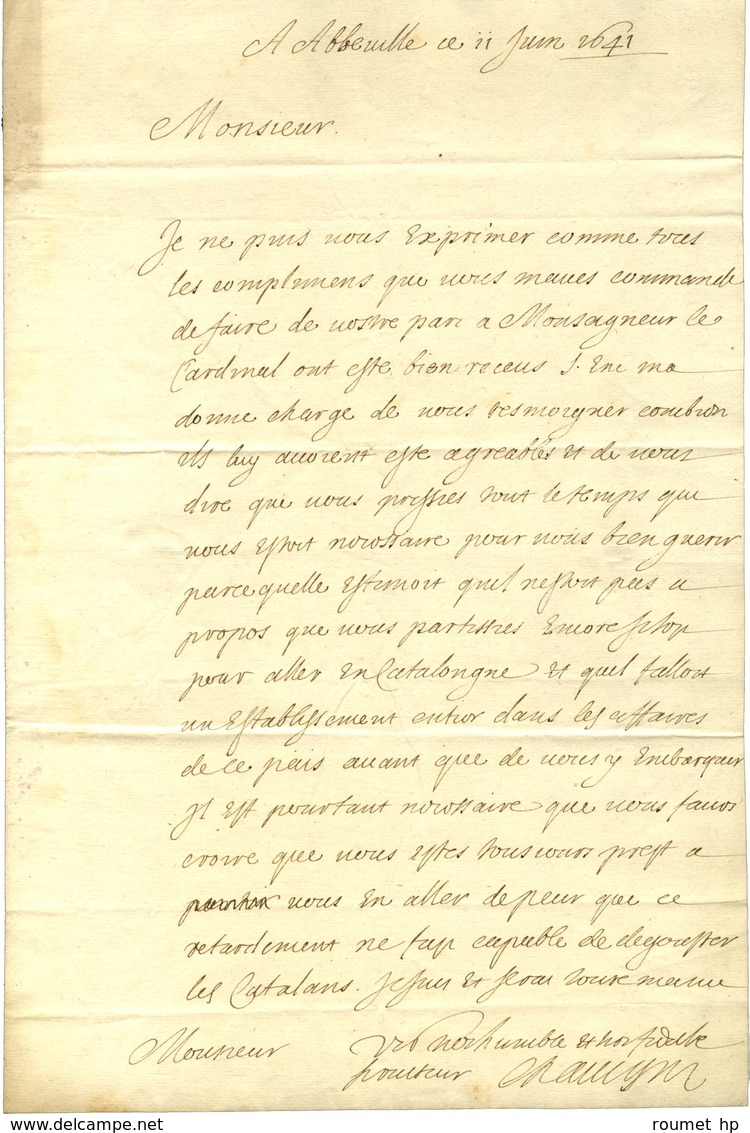 A Abbeville ce 11 Juin 1641
Monsieur.
Je ne puis vous Exprimer comme tous
les complimens que vous maves commandé
de faire de vostre part a Monseigneur le
Cardinal ont esté bien receus S. Enc ma
donné charge de vous tesmoigner combien
ils luy avoient esté agreables et de vous
dire que vous prissies tout le temps que
vous Estoit necessaire pour vous bien guerir
parce quelle Estimoit quil nestoit pas a
propos que vous partissies Encore sitost
pour aller En Catalongne et quil falloit
un Establissement entier dans les affaires
de ce pais avant que de vous y Embarquer
Jl Est pourtant necessaire que vous facies
croire que vous estes tousiours prest a
vous En aller de peur que ce
retardement ne fust capable de degouster
les Catalans. Je suis et seray toute ma vie
Monsieur
Vre tres humble et tres fidelle
serviteur Chavigny
roumet hp